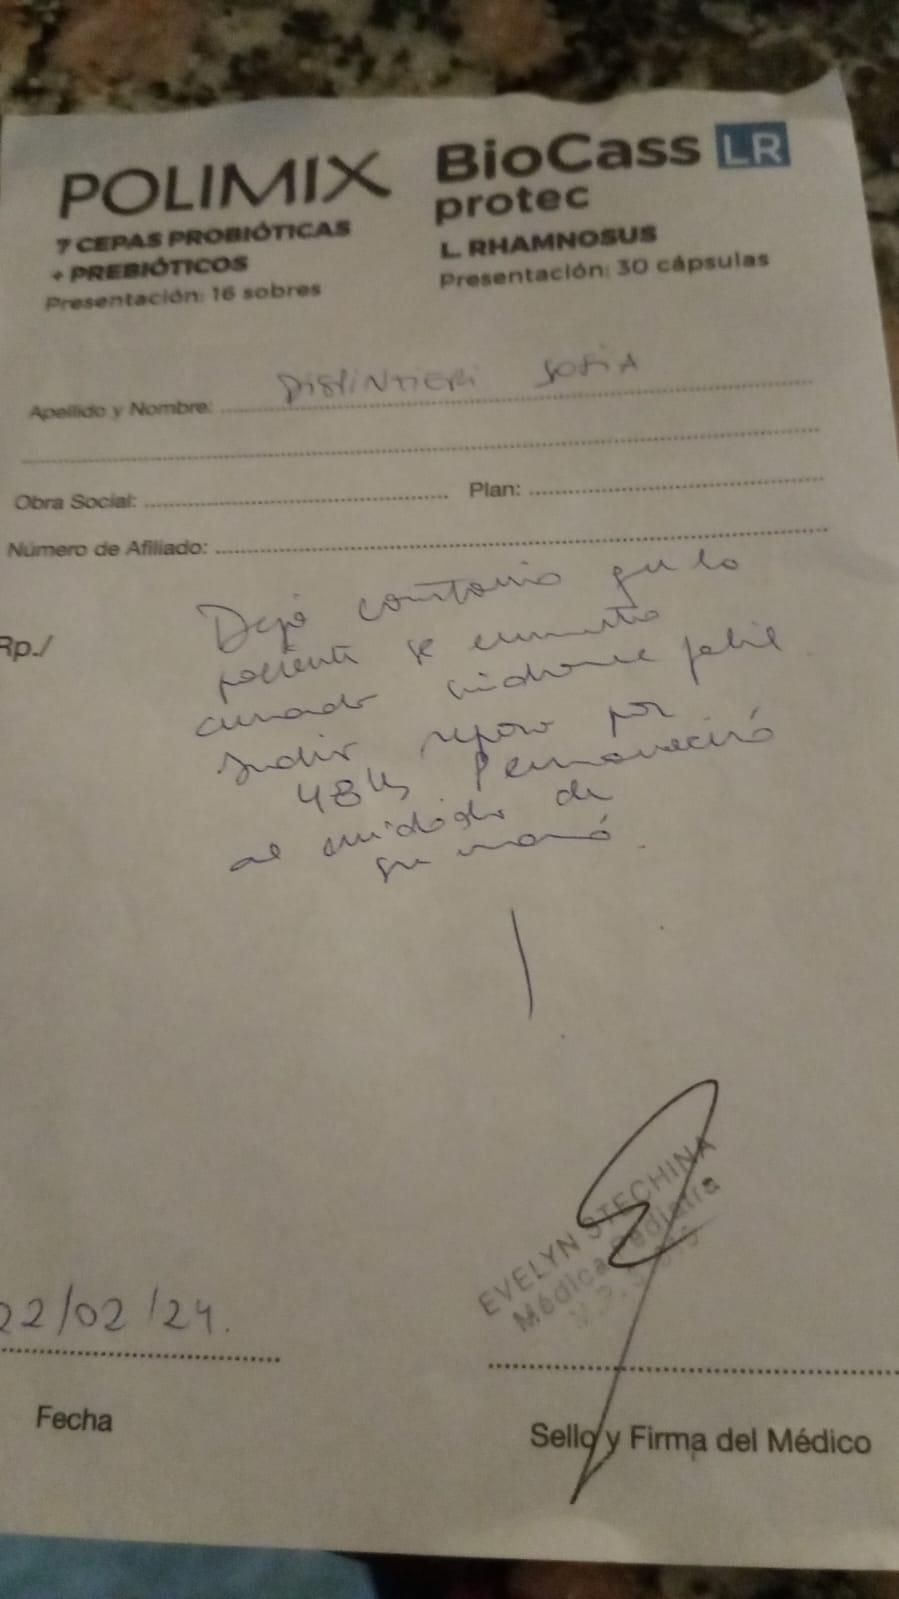 POLIMIX
7 CEPAS PROBIÓTICAS
+ PREBIÓTICOS
Presentación: 16 sobres
BioCass LR
protec
L. RHAMNOSUS
Presentación: 30 cápsulas
Apellido y Nombre: SOFIA
Obra Social: Plan:
Número de Afiliado:
Rp./
Dejo constancia que la
paciente se encuentra
cursando síndrome febril
Indico reposo por
48hs Permaneció
al cuidado de
su mamá.
EVELYN STECHINA
Médica Pediatra
22/02/24.
Fecha
Sello y Firma del Médico